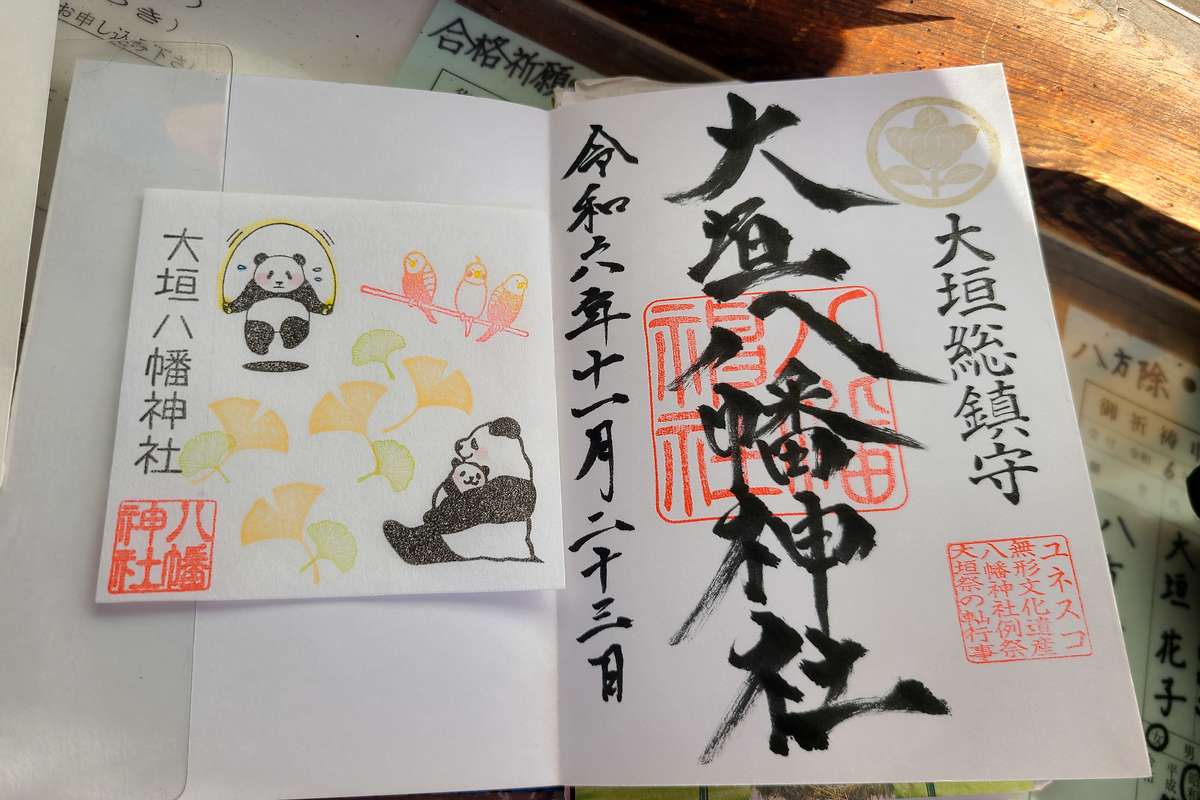 お申し込み下さい
合格祈願
大垣総鎮守
大垣八幡神社
八幡
神社
令和六年十一月二十三日
ユネスコ
無形文化遺産
八幡神社例祭
大垣祭の軕行事
大垣八幡神社
八幡
神社
八方除
御祈祷
大垣花子
男
平成